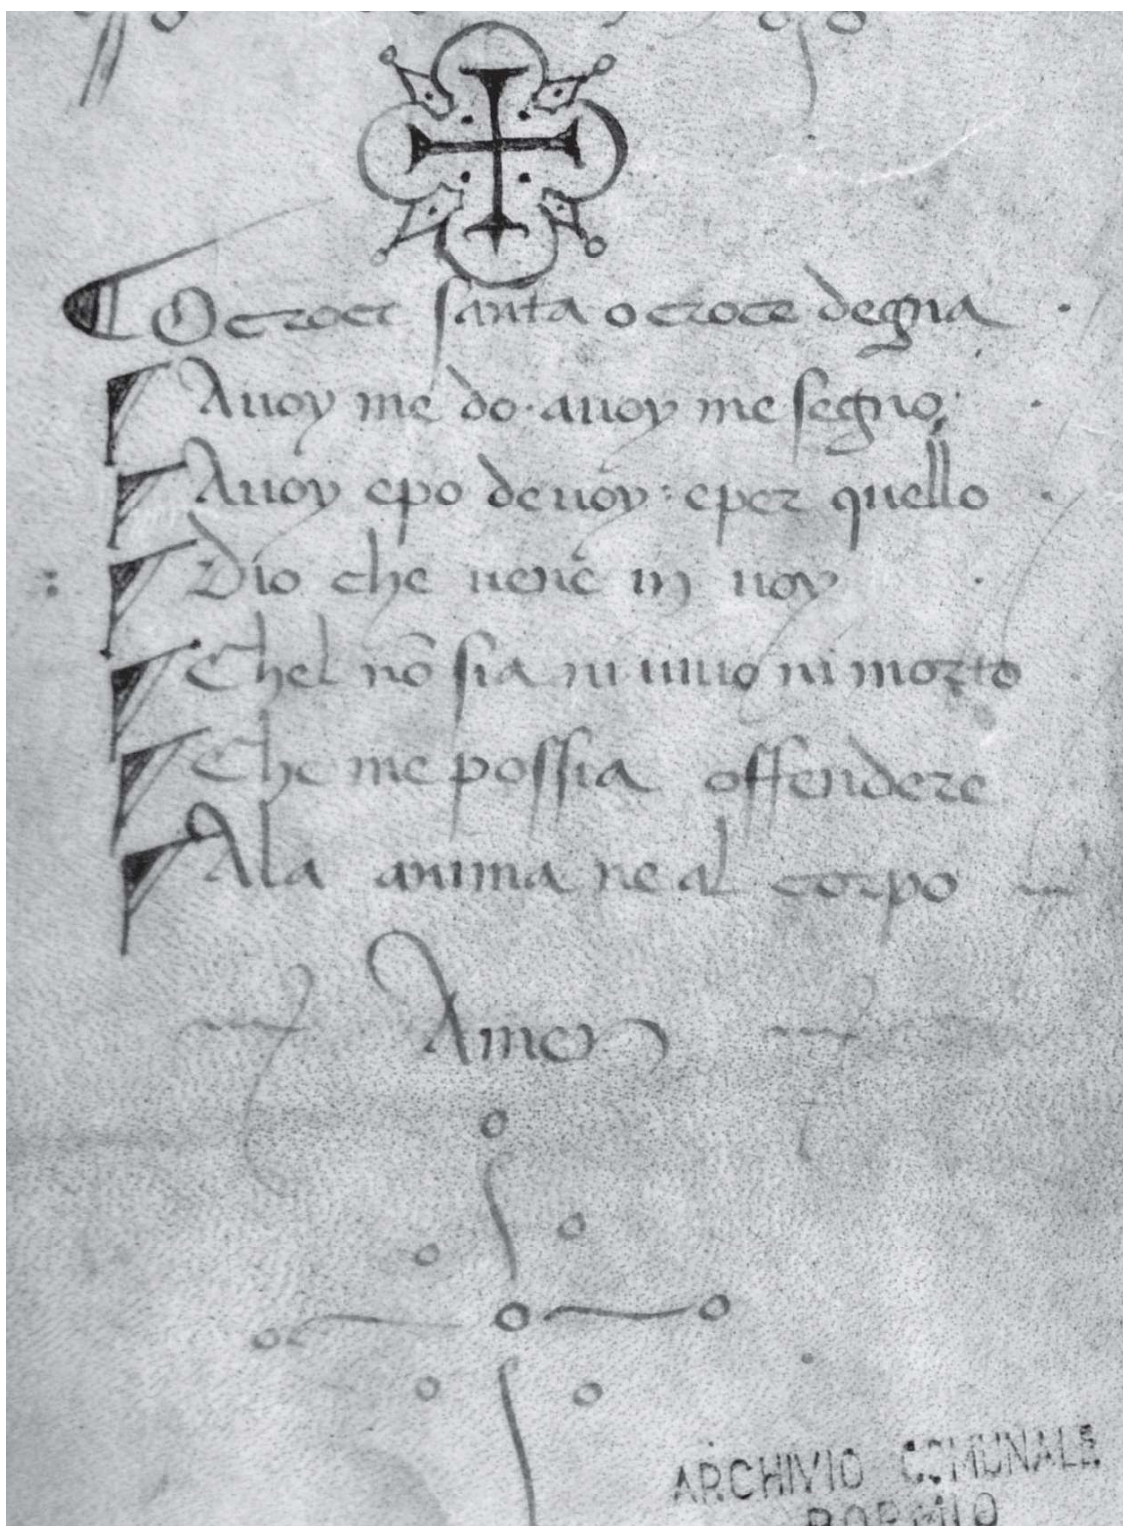 ¶ O croce santa o croce degna ·
Auoy me do · auoy me segno ·
Auoy epo de uoy : eper quello ·
Dio che uenē in uoy ·
Chel nō sia ni uiuo ni morto
Che me possia offendere
Ala anima ne al corpo
Amen
ARCHIVIO COMUNALE
BORMIO